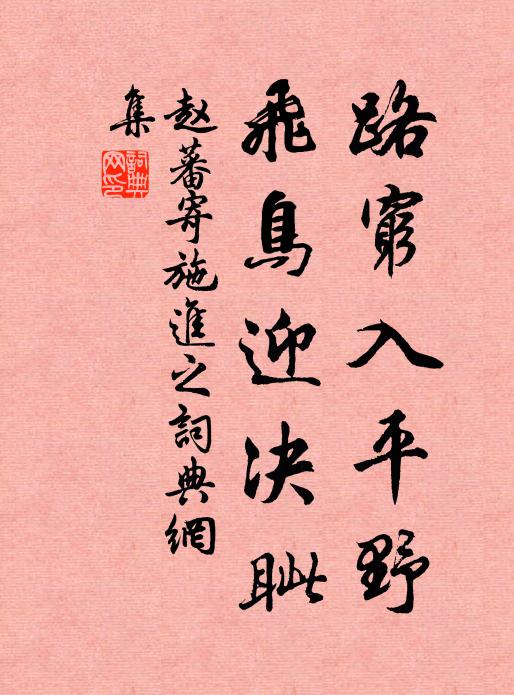 路窮入平野
飛鳥迎決眦
赵蕃寄施進之詞典網
集
詞典
网印